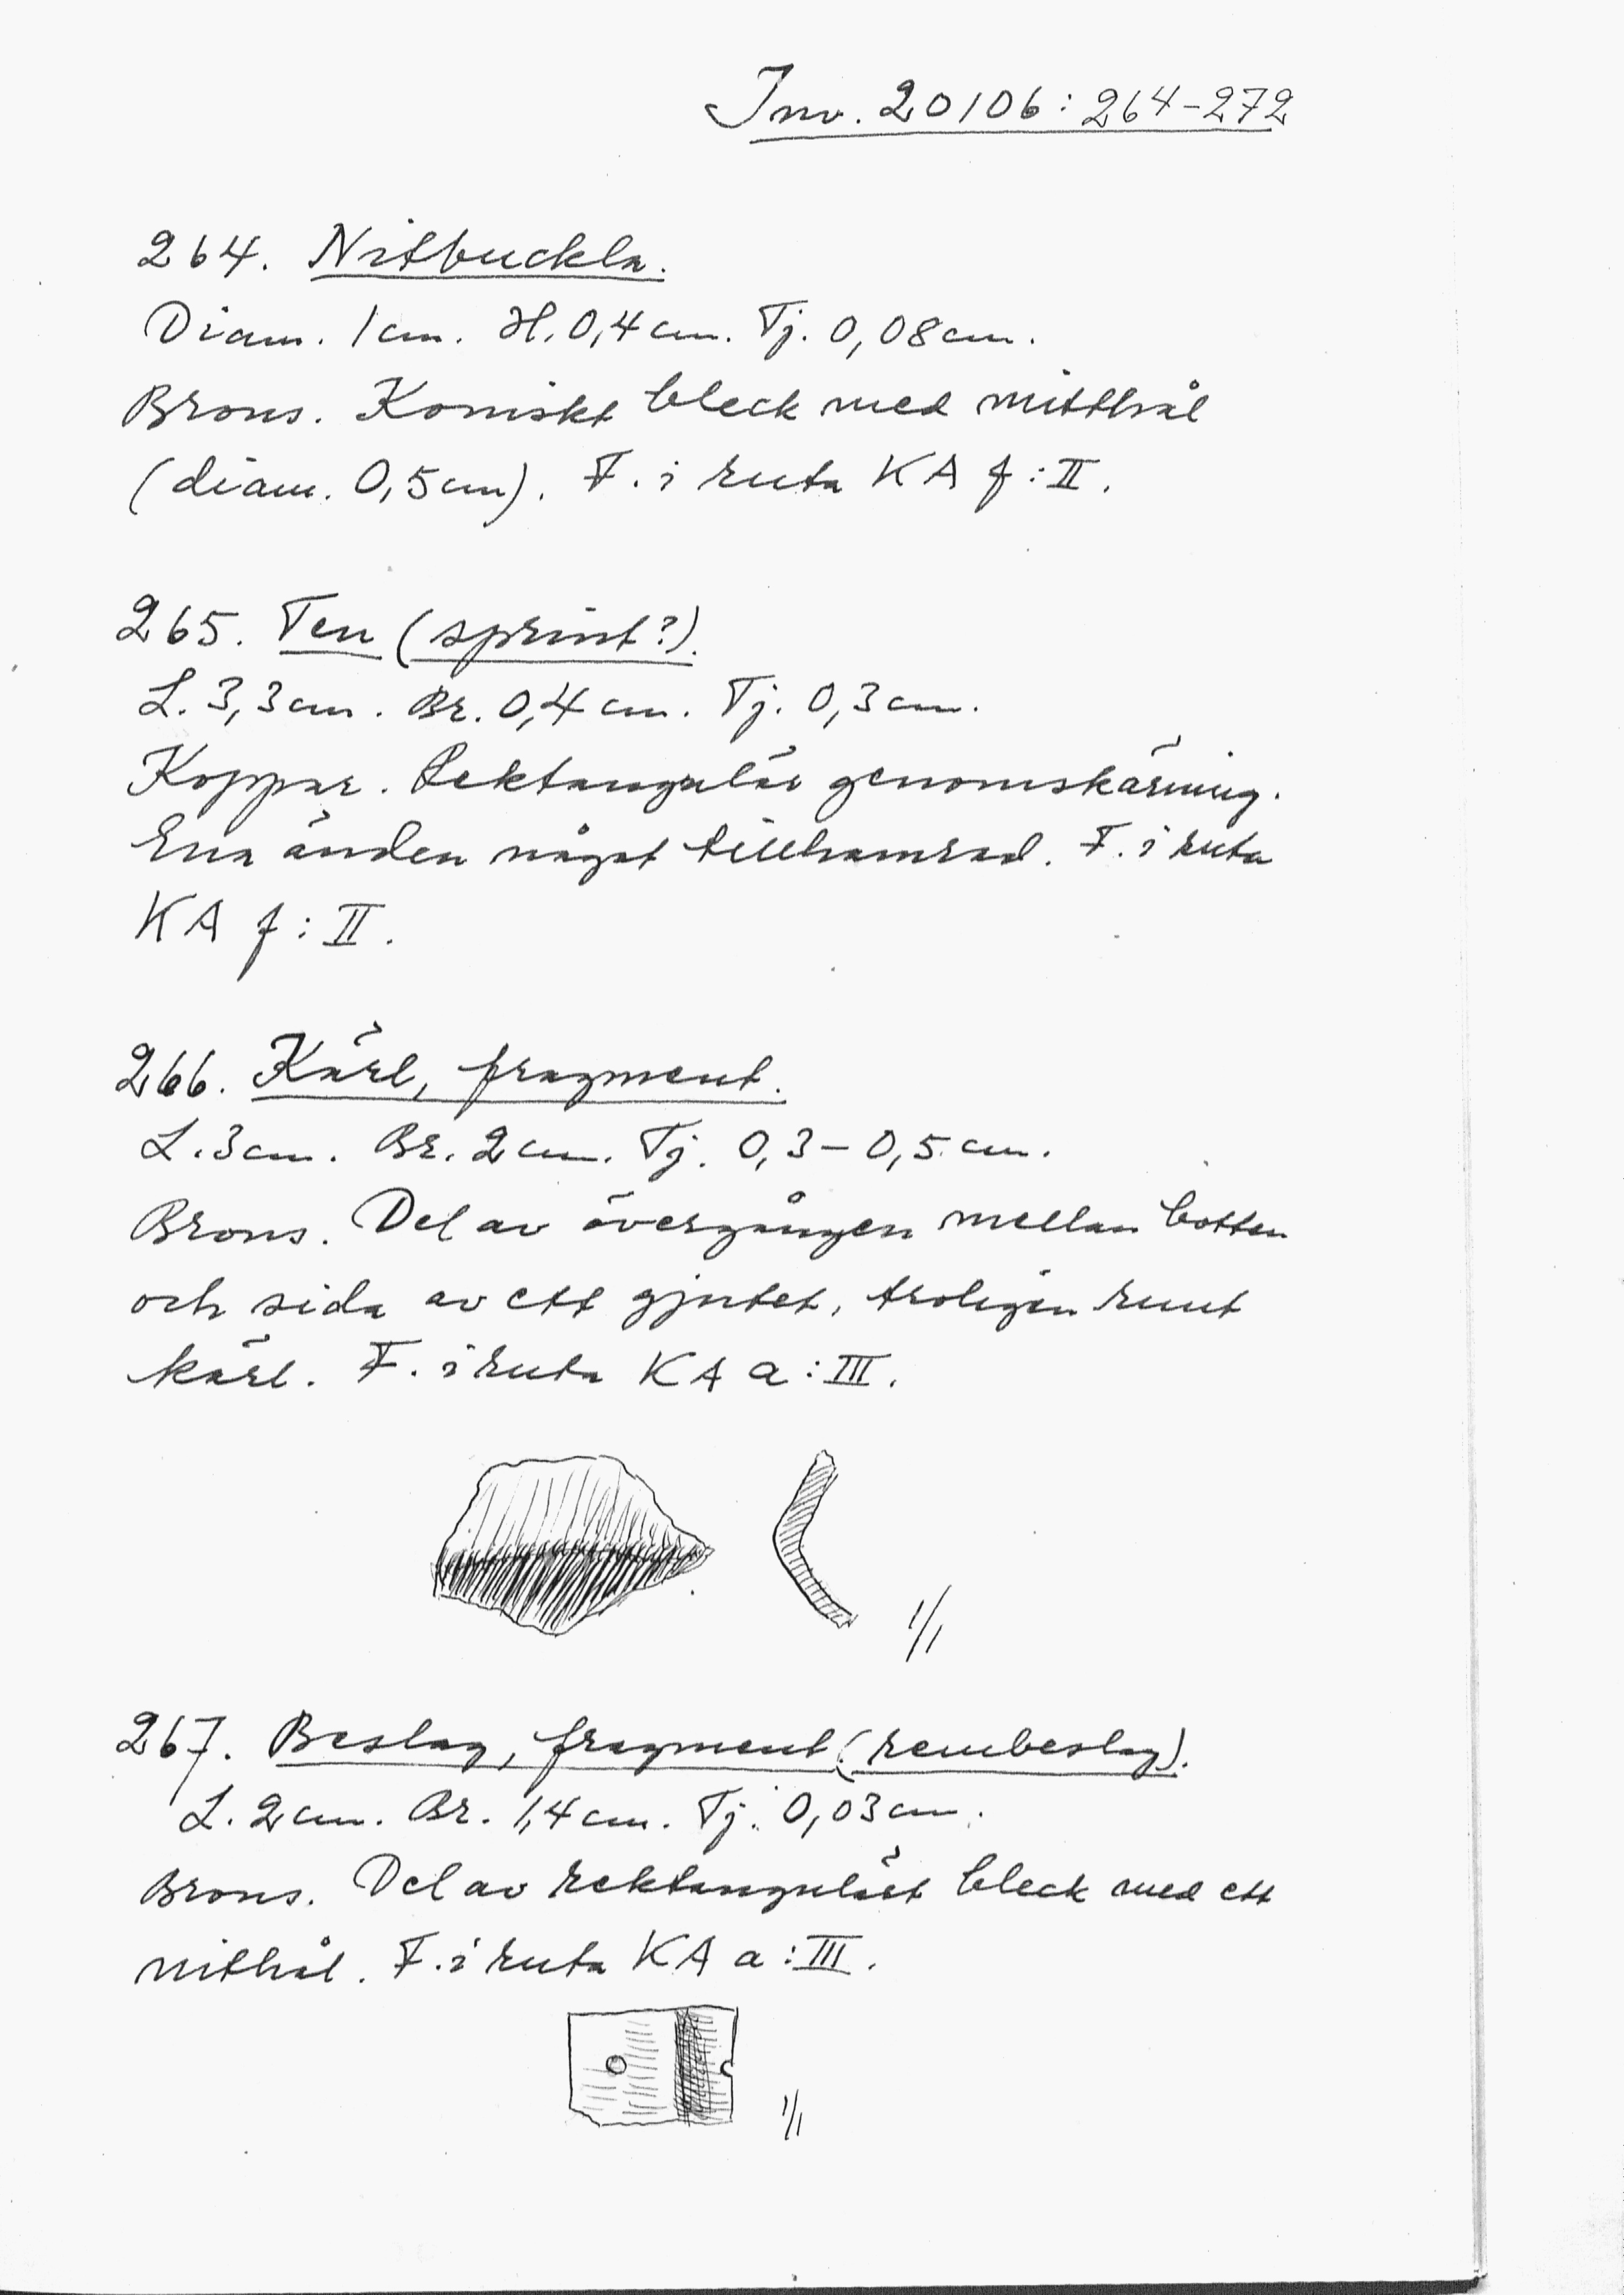 Inv. 20106:264-272
264. Nitbuckla.
Diam. 1 cm. H. 0,4 cm. Tj. 0,08 cm.
Brons. Koniskt bleck med mitthål
(diam. 0,5 cm). F. i ruta KA f:II.
265. Ten (sprint?).
L. 3,3 cm. Br. 0,4 cm. Tj. 0,3 cm.
Koppar. Rektangulär genomskärning.
Ena änden något tillhamrad. F. i ruta
KA f:II.
266. Kärl, fragment.
L. 3 cm. Br. 2 cm. Tj. 0,3-0,5 cm.
Brons. Del av övergången mellan botten
och sida av ett gjutet, troligen runt
kärl. F. i ruta KA a:III.
1/1
267. Beslag, fragment (rembeslag).
L. 2 cm. Br. 1,4 cm. Tj. 0,03 cm.
Brons. Del av rektangulärt bleck med ett
nithål. F. i ruta KA a:III.
1/1